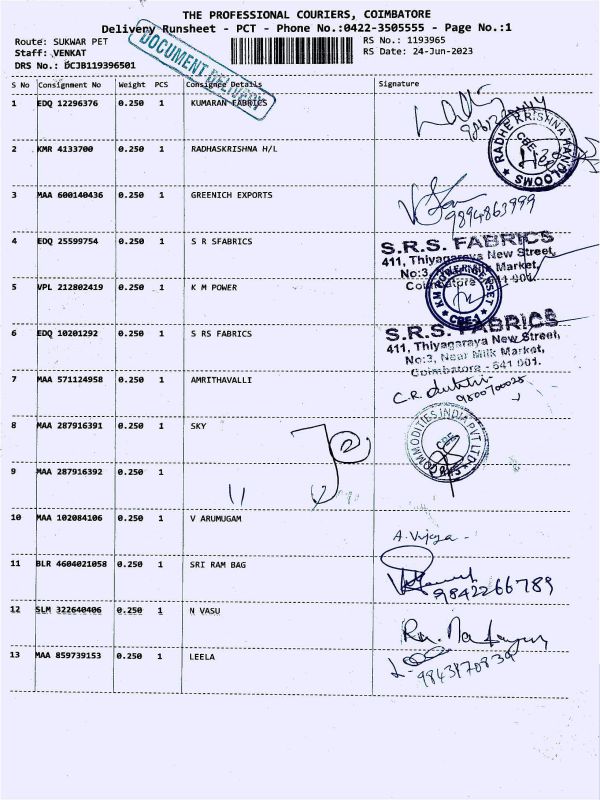 THE PROFESSIONAL COURIERS, COIMBATORE
Delivery Runsheet - PCT - Phone No.:0422-3505555 - Page No.:1
Route: SUKWAR PET
RS No.: 1193965
Staff: VENKAT
RS Date: 24-Jun-2023
DRS No.: DCJB119396501
DOCUMENT DELIVERY
S No Consignment No Weight PCS Consignee Details Signature
1 EDQ 12296376 0.250 1 KUMARAN FABRICS
RADHE KRISHNA HANDLOOMS
CBE
2 KMR 4133700 0.250 1 RADHASKRISHNA H/L
3 MAA 600140436 0.250 1 GREENICH EXPORTS
9894863999
4 EDQ 25599754 0.250 1 S R SFABRICS
S.R.S. FABRICS
411, Thiyagaraya New Street,
No:3, Milk Market,
Coimbatore - 641 001.
5 VPL 212802419 0.250 1 K M POWER
CBE-1
6 EDQ 10201292 0.250 1 S RS FABRICS
S.R.S. FABRICS
411, Thiyagaraya New Street,
No:3, Near Milk Market,
Coimbatore - 641 001.
7 MAA 571124958 0.250 1 AMRITHAVALLI
C.R.
8 MAA 287916391 0.250 1 SKY
COMMODITIES INDIA PVT LTD
CBE
9 MAA 287916392 0.250 1
10 MAA 102084106 0.250 1 V ARUMUGAM
A. Vijaya
11 BLR 4604021058 0.250 1 SRI RAM BAG
9842266789
12 SLM 322640406 0.250 1 N VASU
13 MAA 859739153 0.250 1 LEELA